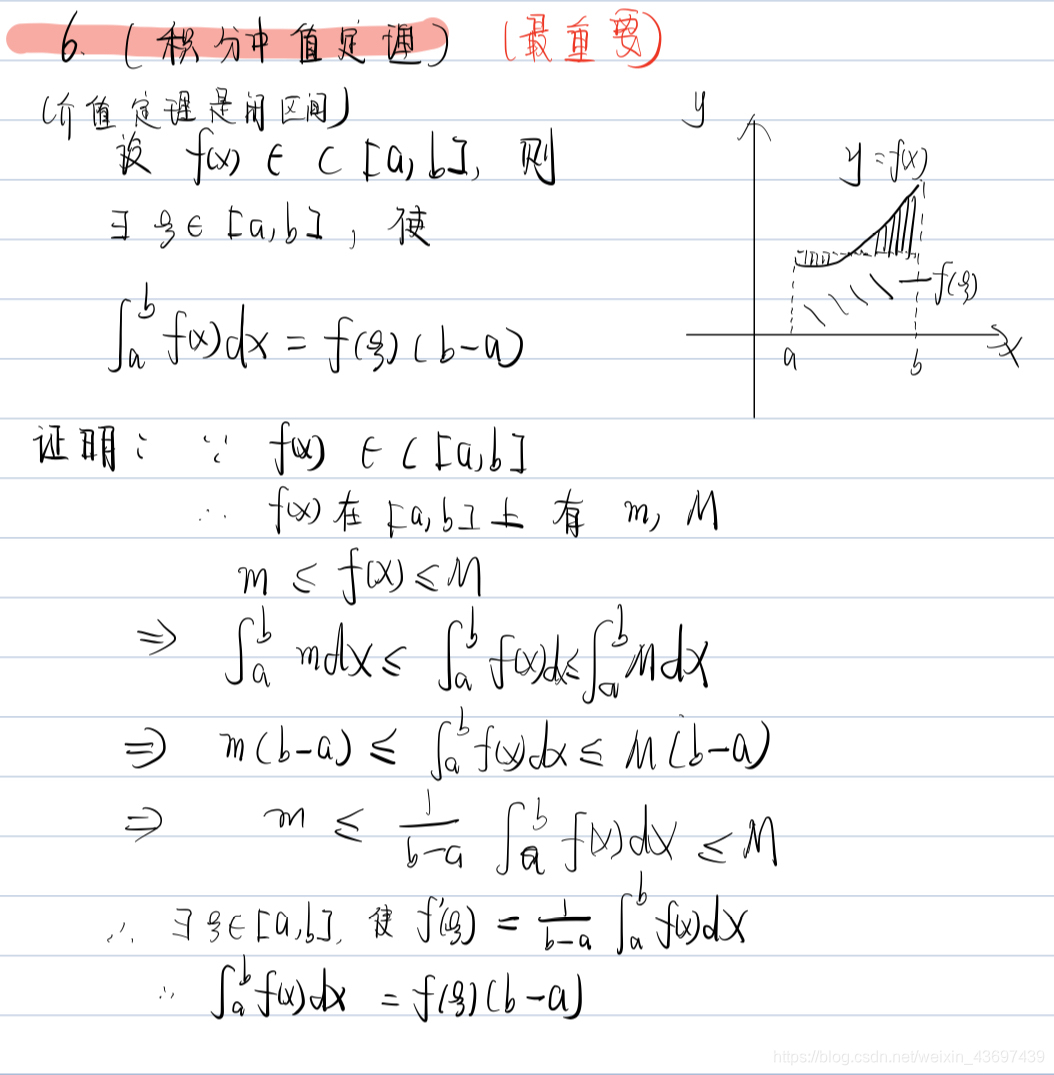 6. (积分中值定理) (最重要)
(介值定理是闭区间)
设 f(x) ∈ C [a, b], 则
∃ ξ ∈ [a, b], 使
∫_a^b f(x)dx = f(ξ)(b-a)
y
y=f(x)
f(ξ)
a
b
x
证明: ∵ f(x) ∈ C[a,b]
∴ f(x) 在 [a,b] 上有 m, M
m ≤ f(x) ≤ M
⇒ ∫_a^b mdx ≤ ∫_a^b f(x)dx ≤ ∫_a^b Mdx
⇒ m(b-a) ≤ ∫_a^b f(x)dx ≤ M(b-a)
⇒ m ≤ 1/(b-a) ∫_a^b f(x)dx ≤ M
∴ ∃ ξ∈[a,b], 使 f'(ξ) = 1/(b-a) ∫_a^b f(x)dx
∴ ∫_a^b f(x)dx = f(ξ)(b-a)
https://blog.csdn.net/weixin_43697439